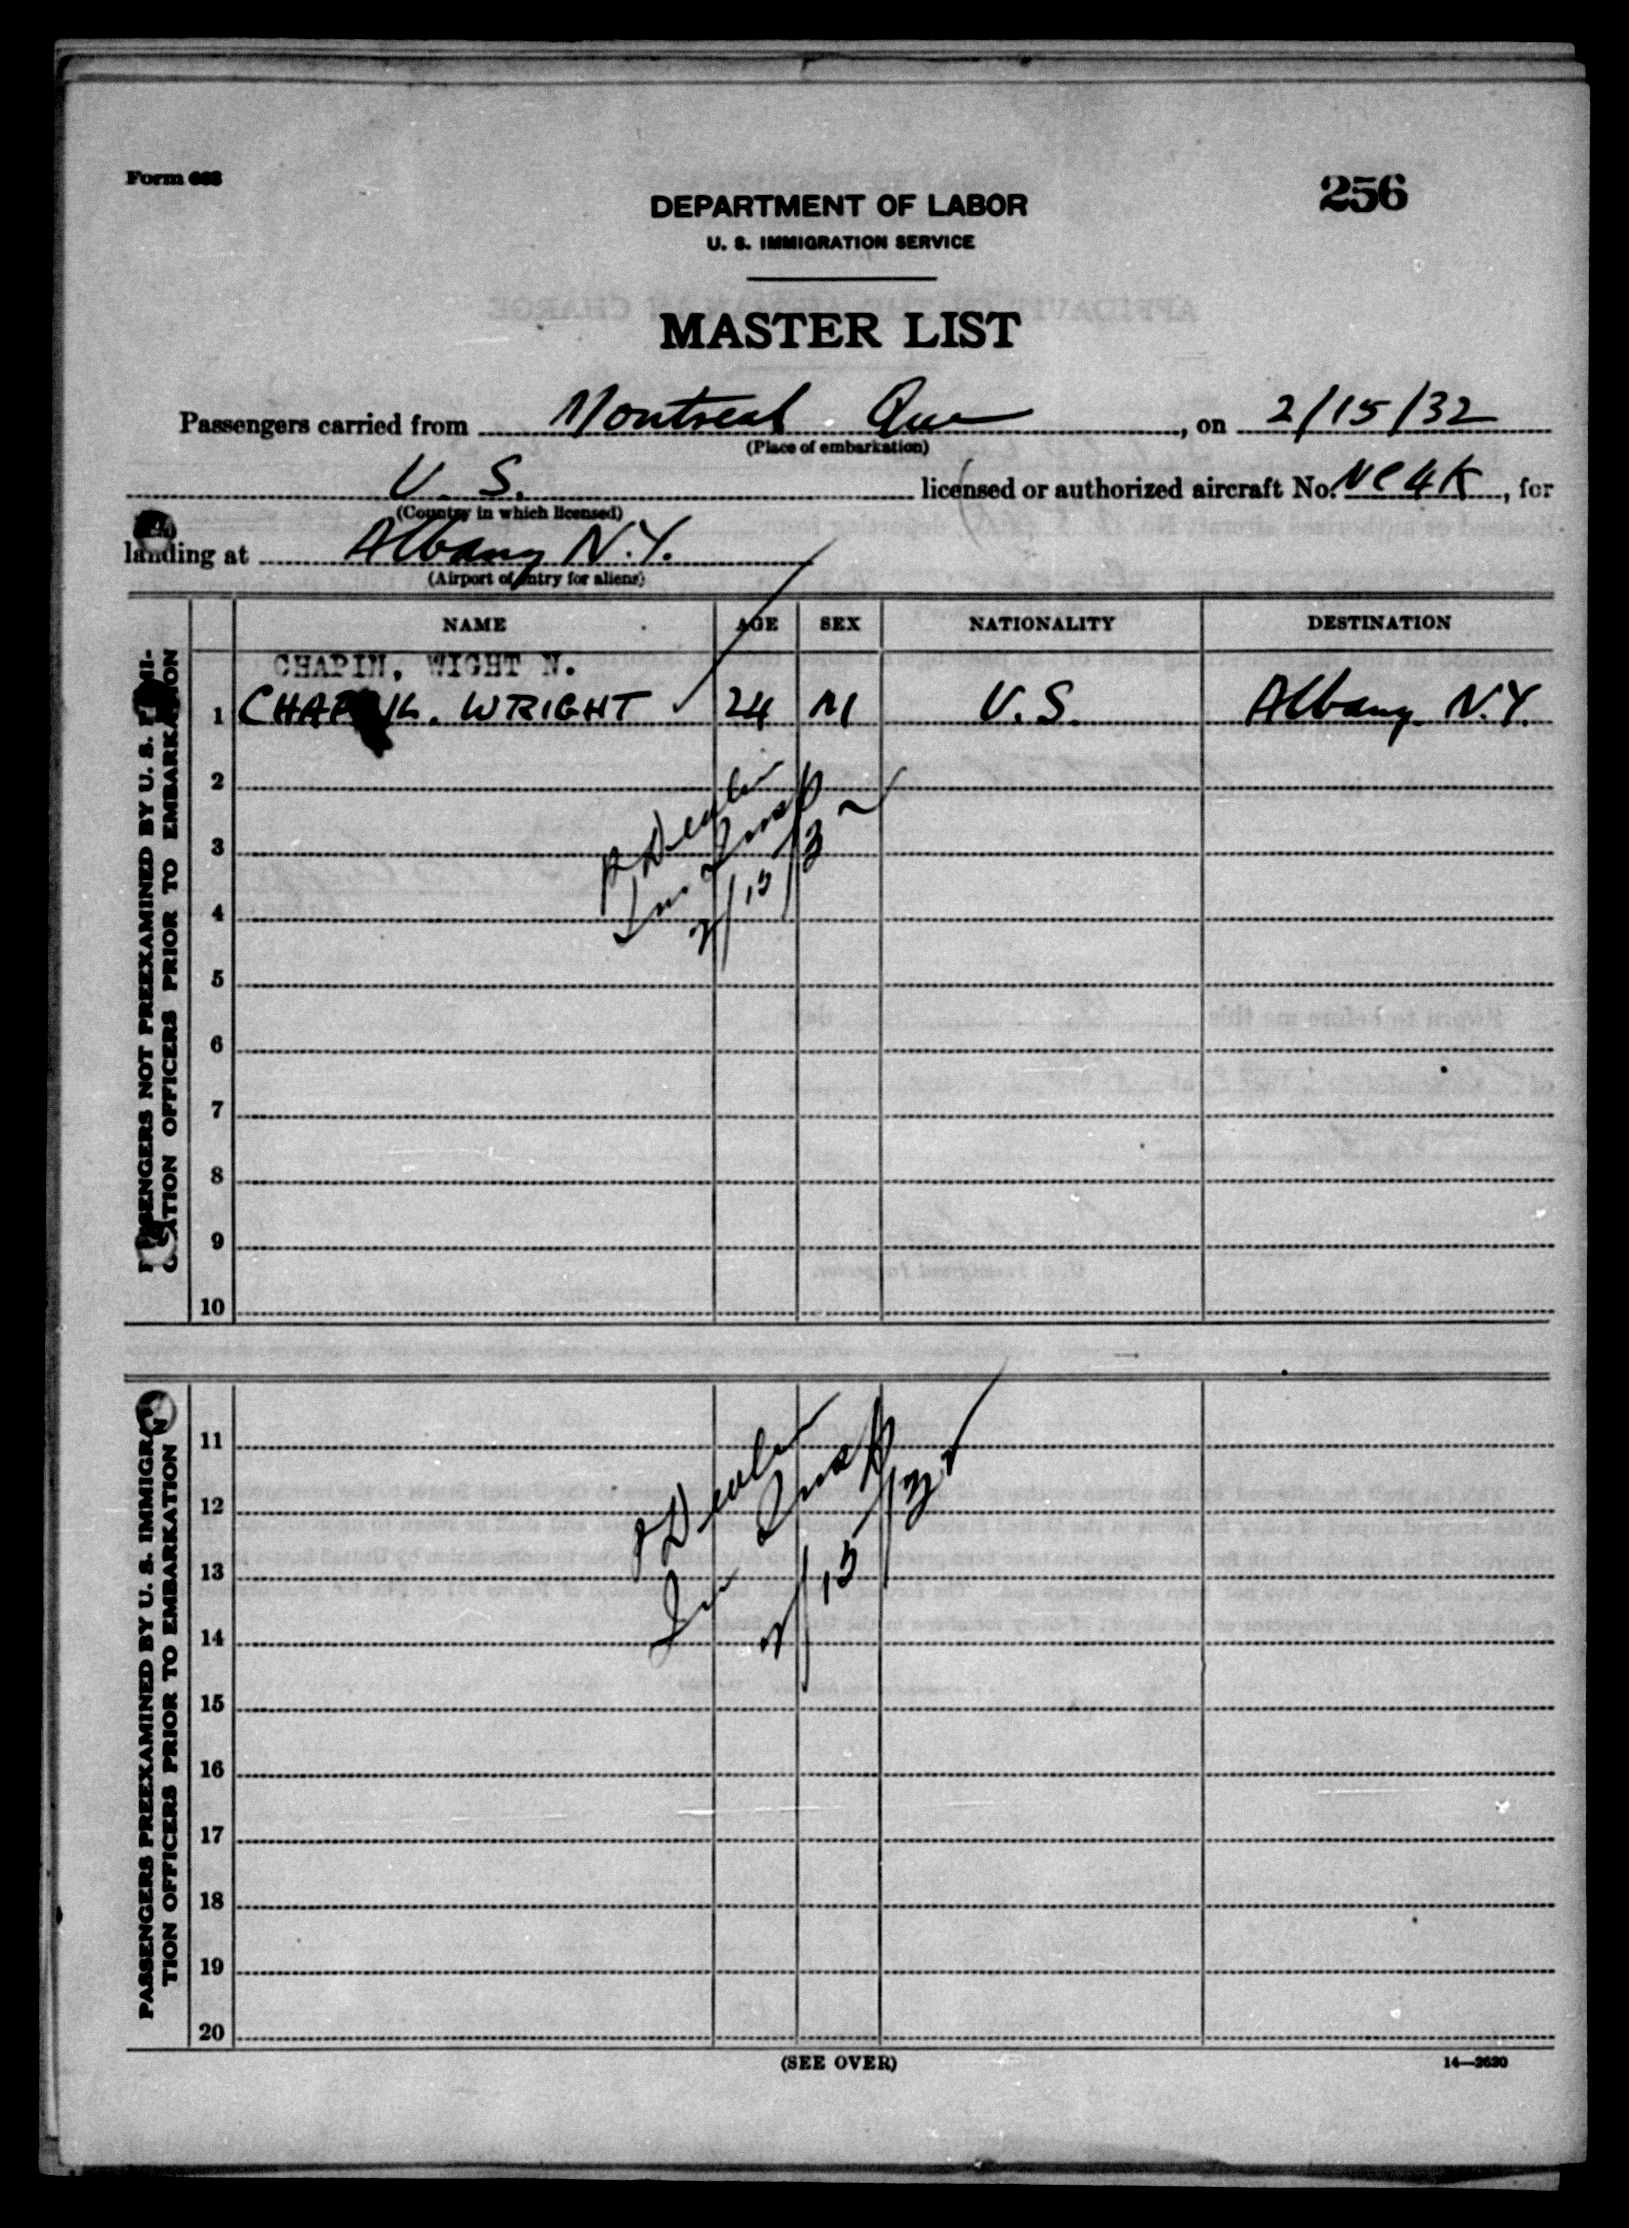 Form
256
DEPARTMENT OF LABOR
U. S. IMMIGRATION SERVICE
MASTER LIST
Passengers carried from Montreal Que, on 2/15/32
(Place of embarkation)
U. S. licensed or authorized aircraft No. NC4K, for
(Country in which licensed)
landing at Albany N.Y.
(Airport of entry for aliens)
NAME AGE SEX NATIONALITY DESTINATION
CHAPIN, WIGHT N.
1 WRIGHT 24 M U.S. Albany N.Y.
2
3
4
5
6
7
8
9
10
Insp
2/15/32
PASSENGERS NOT PREEXAMINED BY U. S. IMMI-
GRATION OFFICERS PRIOR TO EMBARKATION
11
12
13
14
15
16
17
18
19
20
Insp
2/15/32
PASSENGERS PREEXAMINED BY U. S. IMMIGRA-
TION OFFICERS PRIOR TO EMBARKATION
(SEE OVER)
14—2620